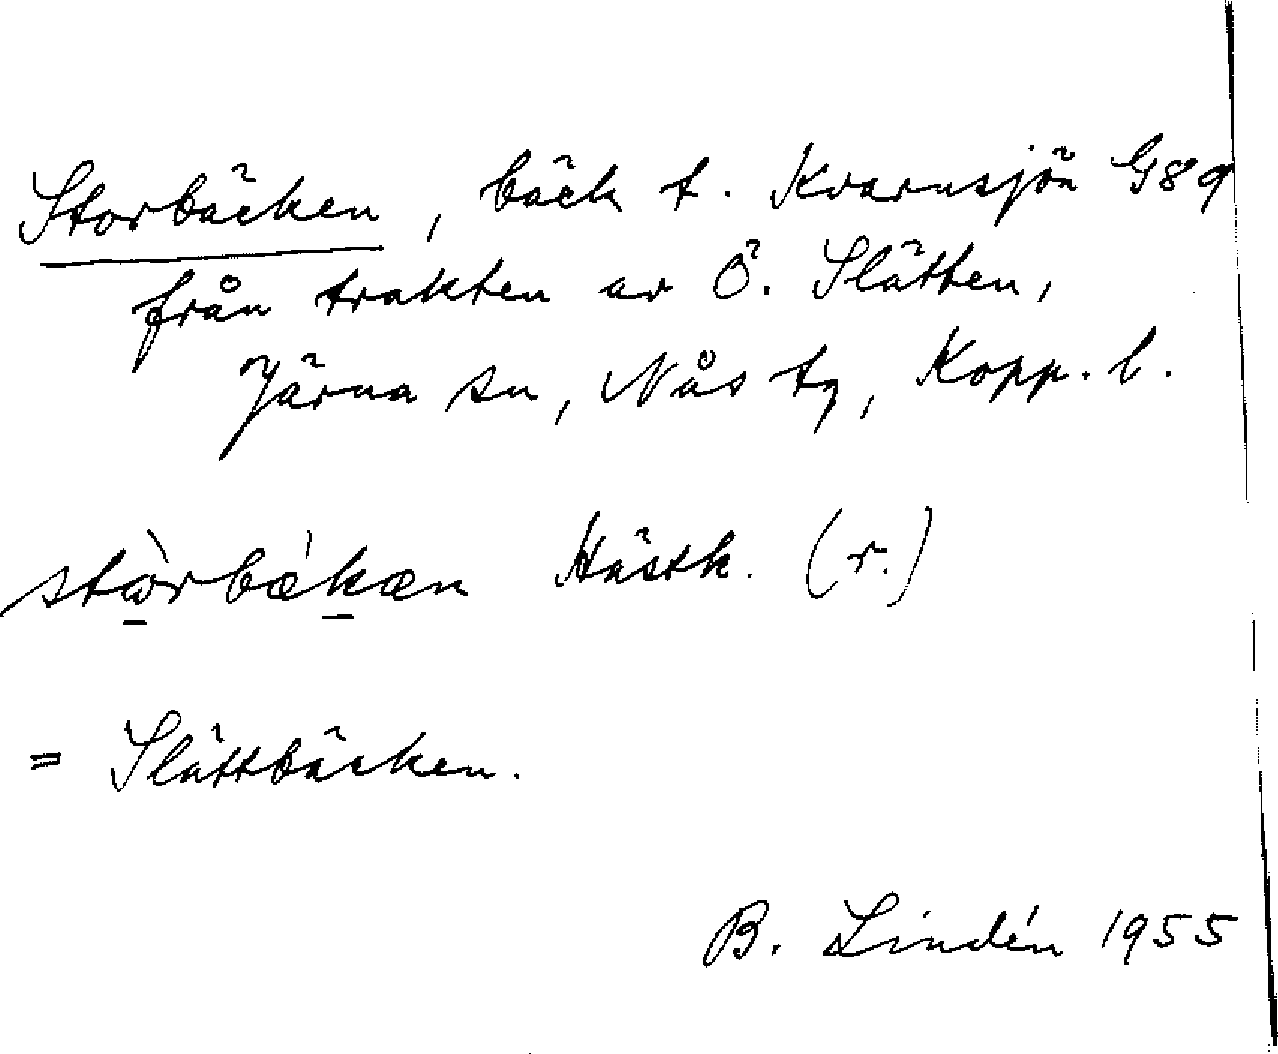 Storbäcken, bäck t. Kvarnsjön G89
från trakten av Ö. Slätten,
Järna sn, Nås tg, Kopp. l.
stὼrbǽkæn Hästk. (r.)
= Slättbäcken.
B. Lindén 1955